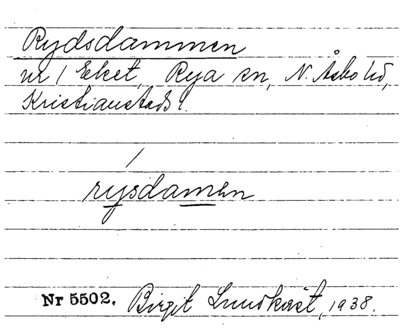 Rydsdammen
nr 1 Eket, Rya sn, N. Åsbo hd,
Kristianstads l.
rysdamen
Nr 5502. Birgit Lundkvist, 1938.